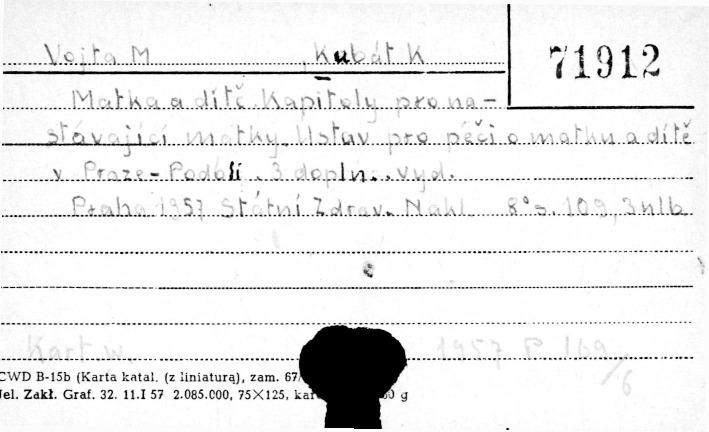 Vojta M , Kubát K
71912
Matka a dítě. Kapitoly pro na-
stávající matky. Ústav pro péči o matku a dítě
v Praze-Podolí. 3 dopln. vyd.
Praha 1957 Státní Zdrav. Nakl 8° s. 109, 3 nlb
Kart w. 1957 P 169/6
CWD B-15b (Karta katal. (z liniaturą), zam. 67/
Jel. Zakł. Graf. 32. 11.I 57 2.085.000, 75×125, g